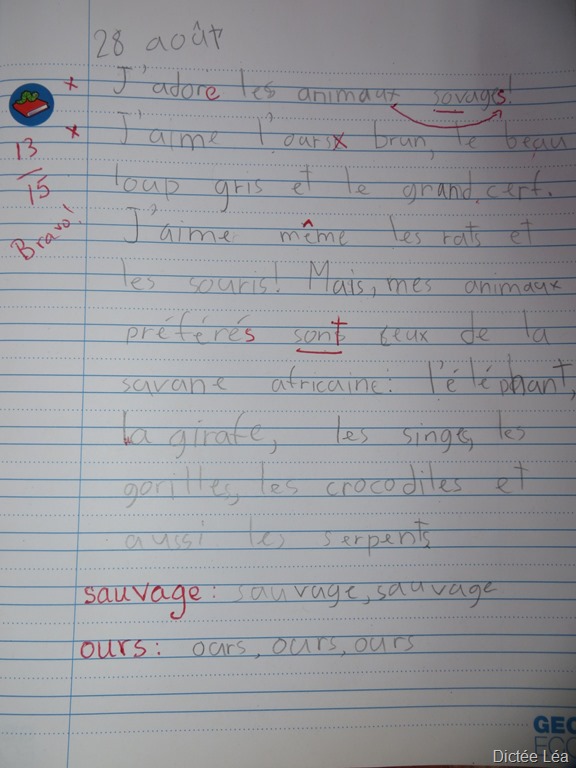 28 août
x J'adore les animaux sovages!
x J'aime l'oursx brun, le beau
13
15
loup gris et le grand cerf.
Bravo!
J'aime même les rats et
les souris! Mais, mes animaux
préférés sont ceux de la
savane africaine: l'éléphant,
la girafe, les singes, les
gorilles, les crocodiles et
aussi les serpents
sauvage: sauvage, sauvage
ours: ours, ours, ours
GEO
FOO
Dictée Léa